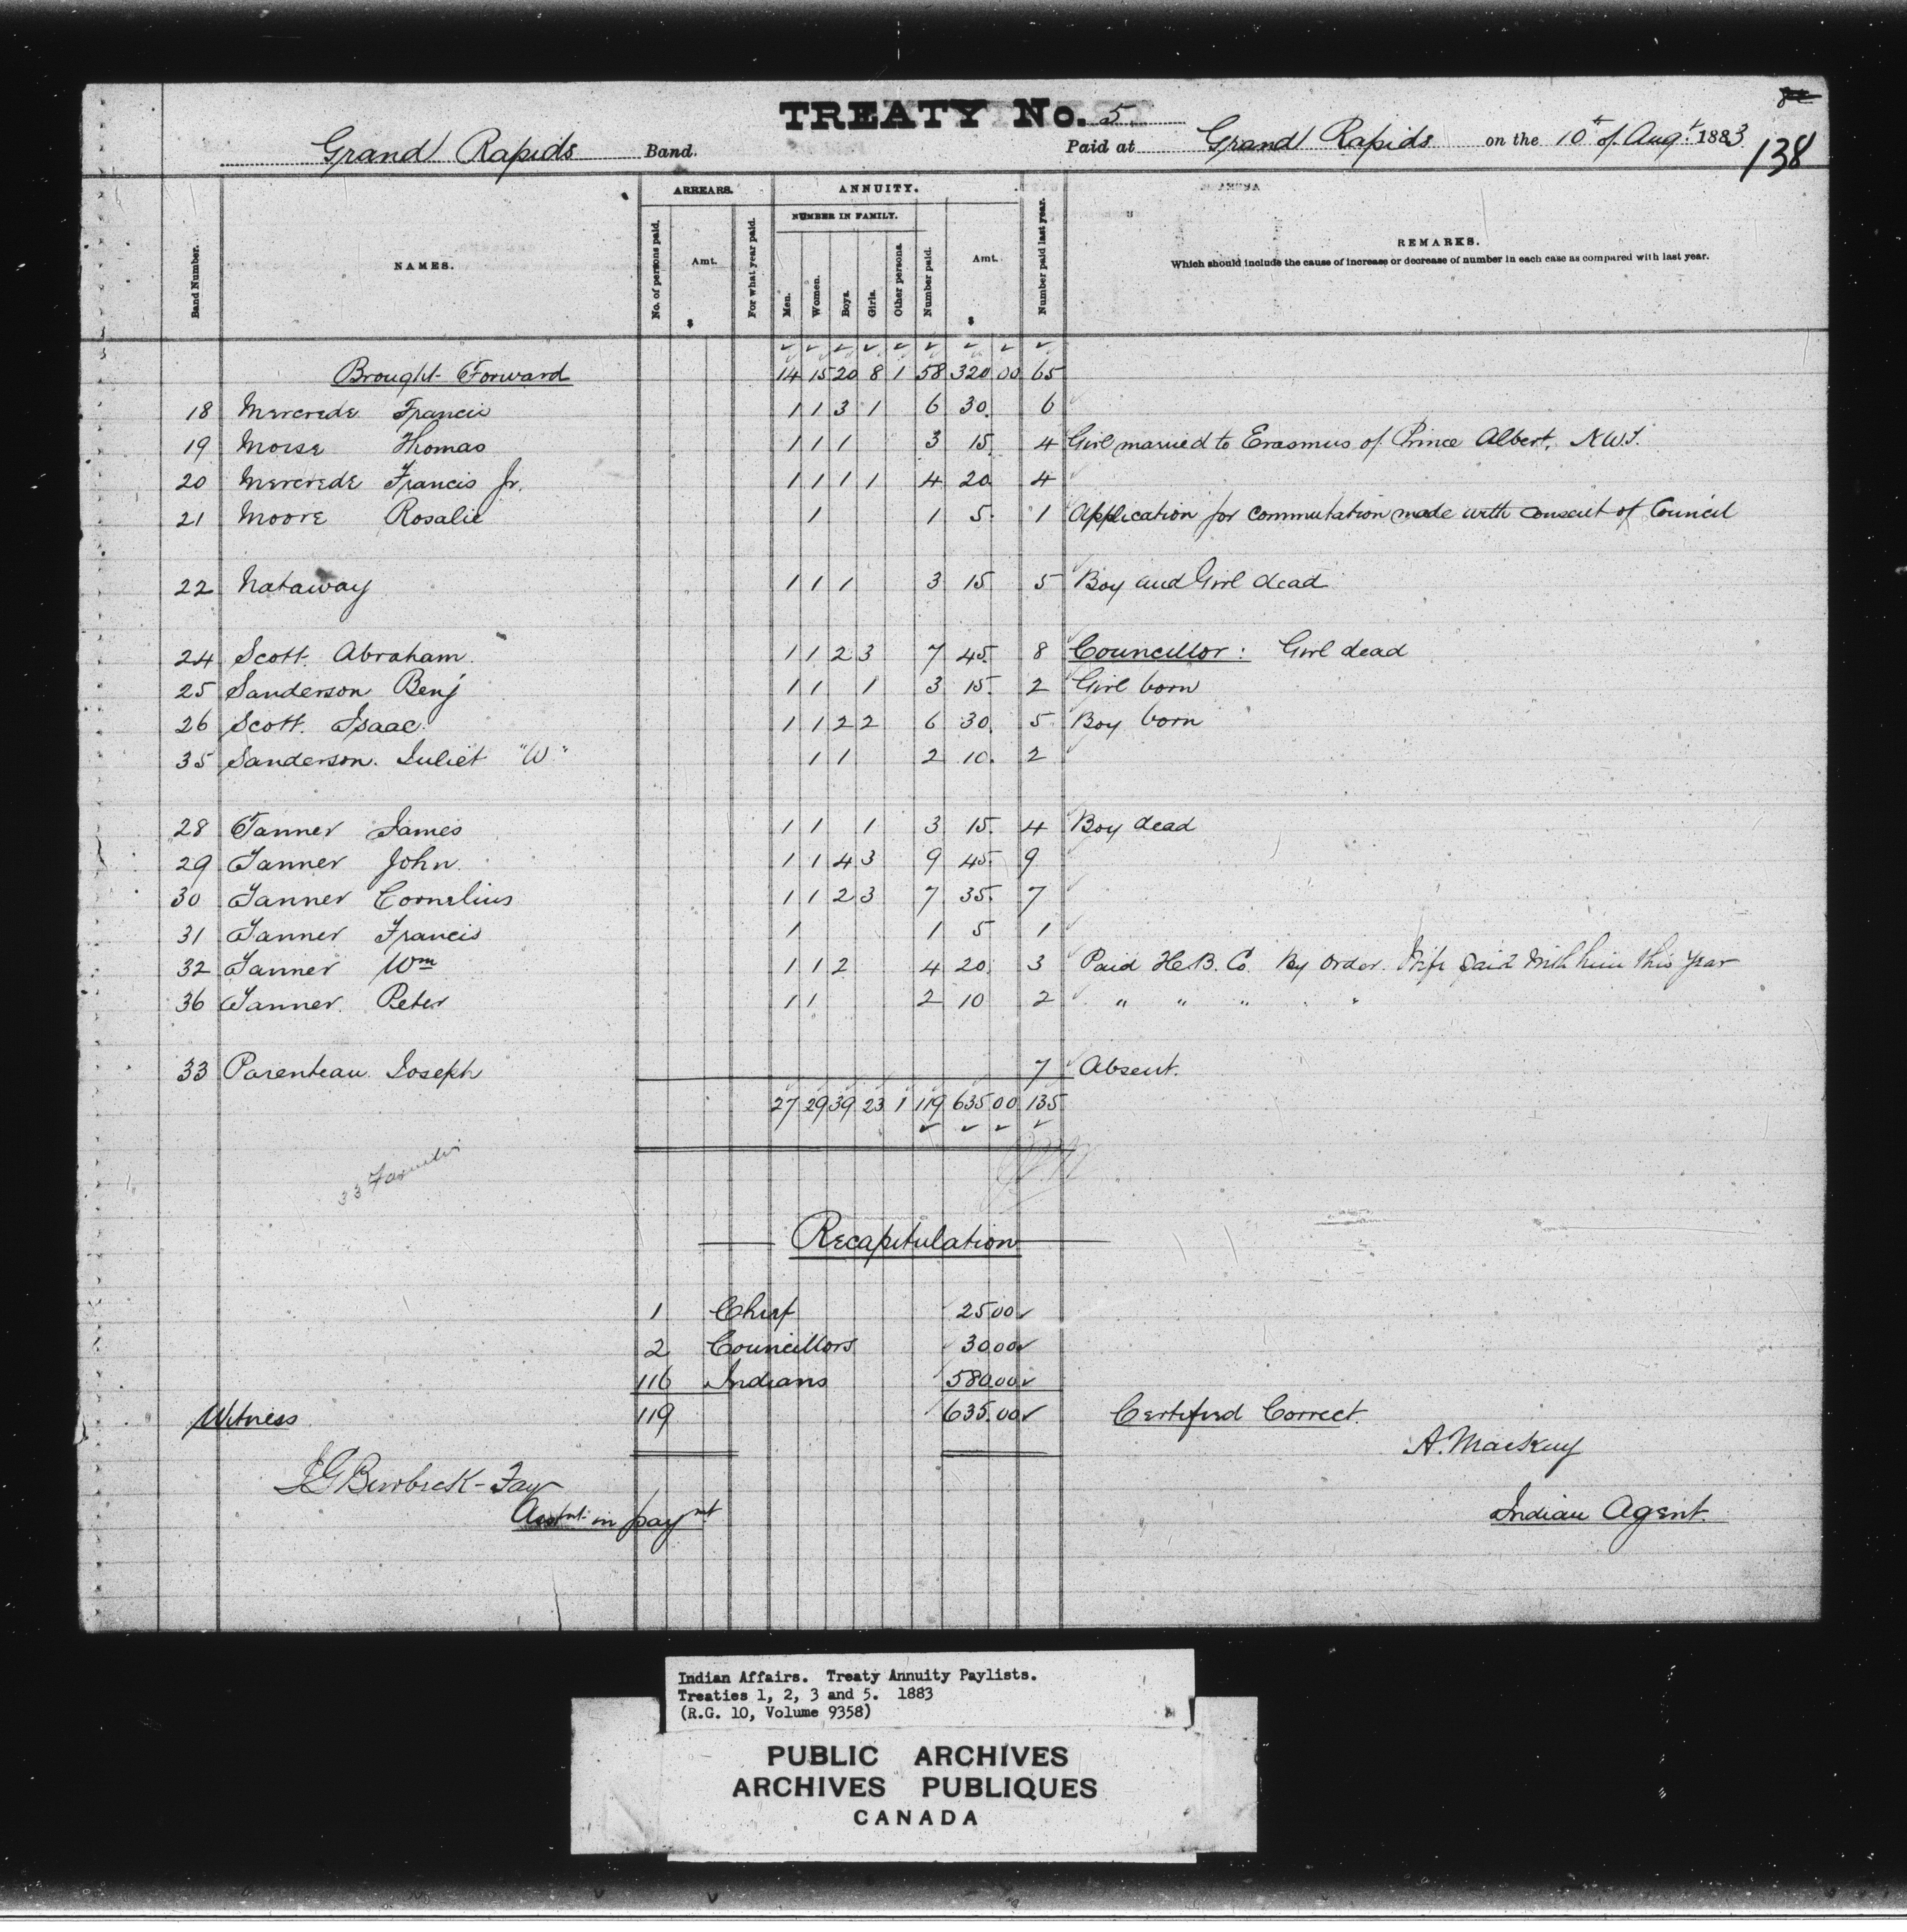 TREATY No. 5.
138
Grand Rapids Band. Paid at Grand Rapids on the 10th of Augt. 1883
ARREARS. ANNUITY.
NUMBER IN FAMILY.
Band Number. NAMES. No. of persons paid. Amt. $ For what year paid. Men. Women. Boys. Girls. Other persons. Number paid. Amt. $ Number paid last year. REMARKS.
Which should include the cause of increase or decrease of number in each case as compared with last year.
Brought Forward 14 15 20 8 1 58 320 00 65
18 Mercrede Francis 1 1 3 1 6 30. 6
19 Morse Thomas 1 1 1 3 15. 4 Girl married to Erasmus of Prince Albert, N.W.T.
20 Mercrede Francis Jr. 1 1 1 1 4 20 4
21 Moore Rosalie 1 1 5. 1 Application for commutation made with consent of Council
22 Nataway 1 1 1 3 15 5 Boy and Girl dead
24 Scott. Abraham. 1 1 2 3 7 45. 8 Councillor: Girl dead
25 Sanderson Benj 1 1 1 3 15. 2 Girl born
26 Scott. Isaac. 1 1 2 2 6 30. 5 Boy born
35 Sanderson. Juliet "W" 1 1 2 10. 2
28 Tanner James 1 1 1 3 15. 4 Boy dead
29 Tanner John. 1 1 4 3 9 45. 9
30 Tanner Cornelius 1 1 2 3 7 35. 7
31 Tanner Francis 1 1 5 1
32 Tanner Wm 1 1 2 4 20 3 Paid H.B. Co. By Order. Wife paid with him this year
36 Tanner. Peter 1 1 2 10 2 " " " " "
33 Parenteau Joseph 7 Absent.
27 29 39 23 1 119 635 00 135
33 Families
Recapitulation
1 Chief 25 00
2 Councillors 30 00
116 Indians 580.00
119 635.00
Witness Certified Correct.
A. MacKay
Indian Agent.
Asstnt. in paymt
Indian Affairs. Treaty Annuity Paylists.
Treaties 1, 2, 3 and 5. 1883
(R.G. 10, Volume 9358)
PUBLIC ARCHIVES
ARCHIVES PUBLIQUES
CANADA